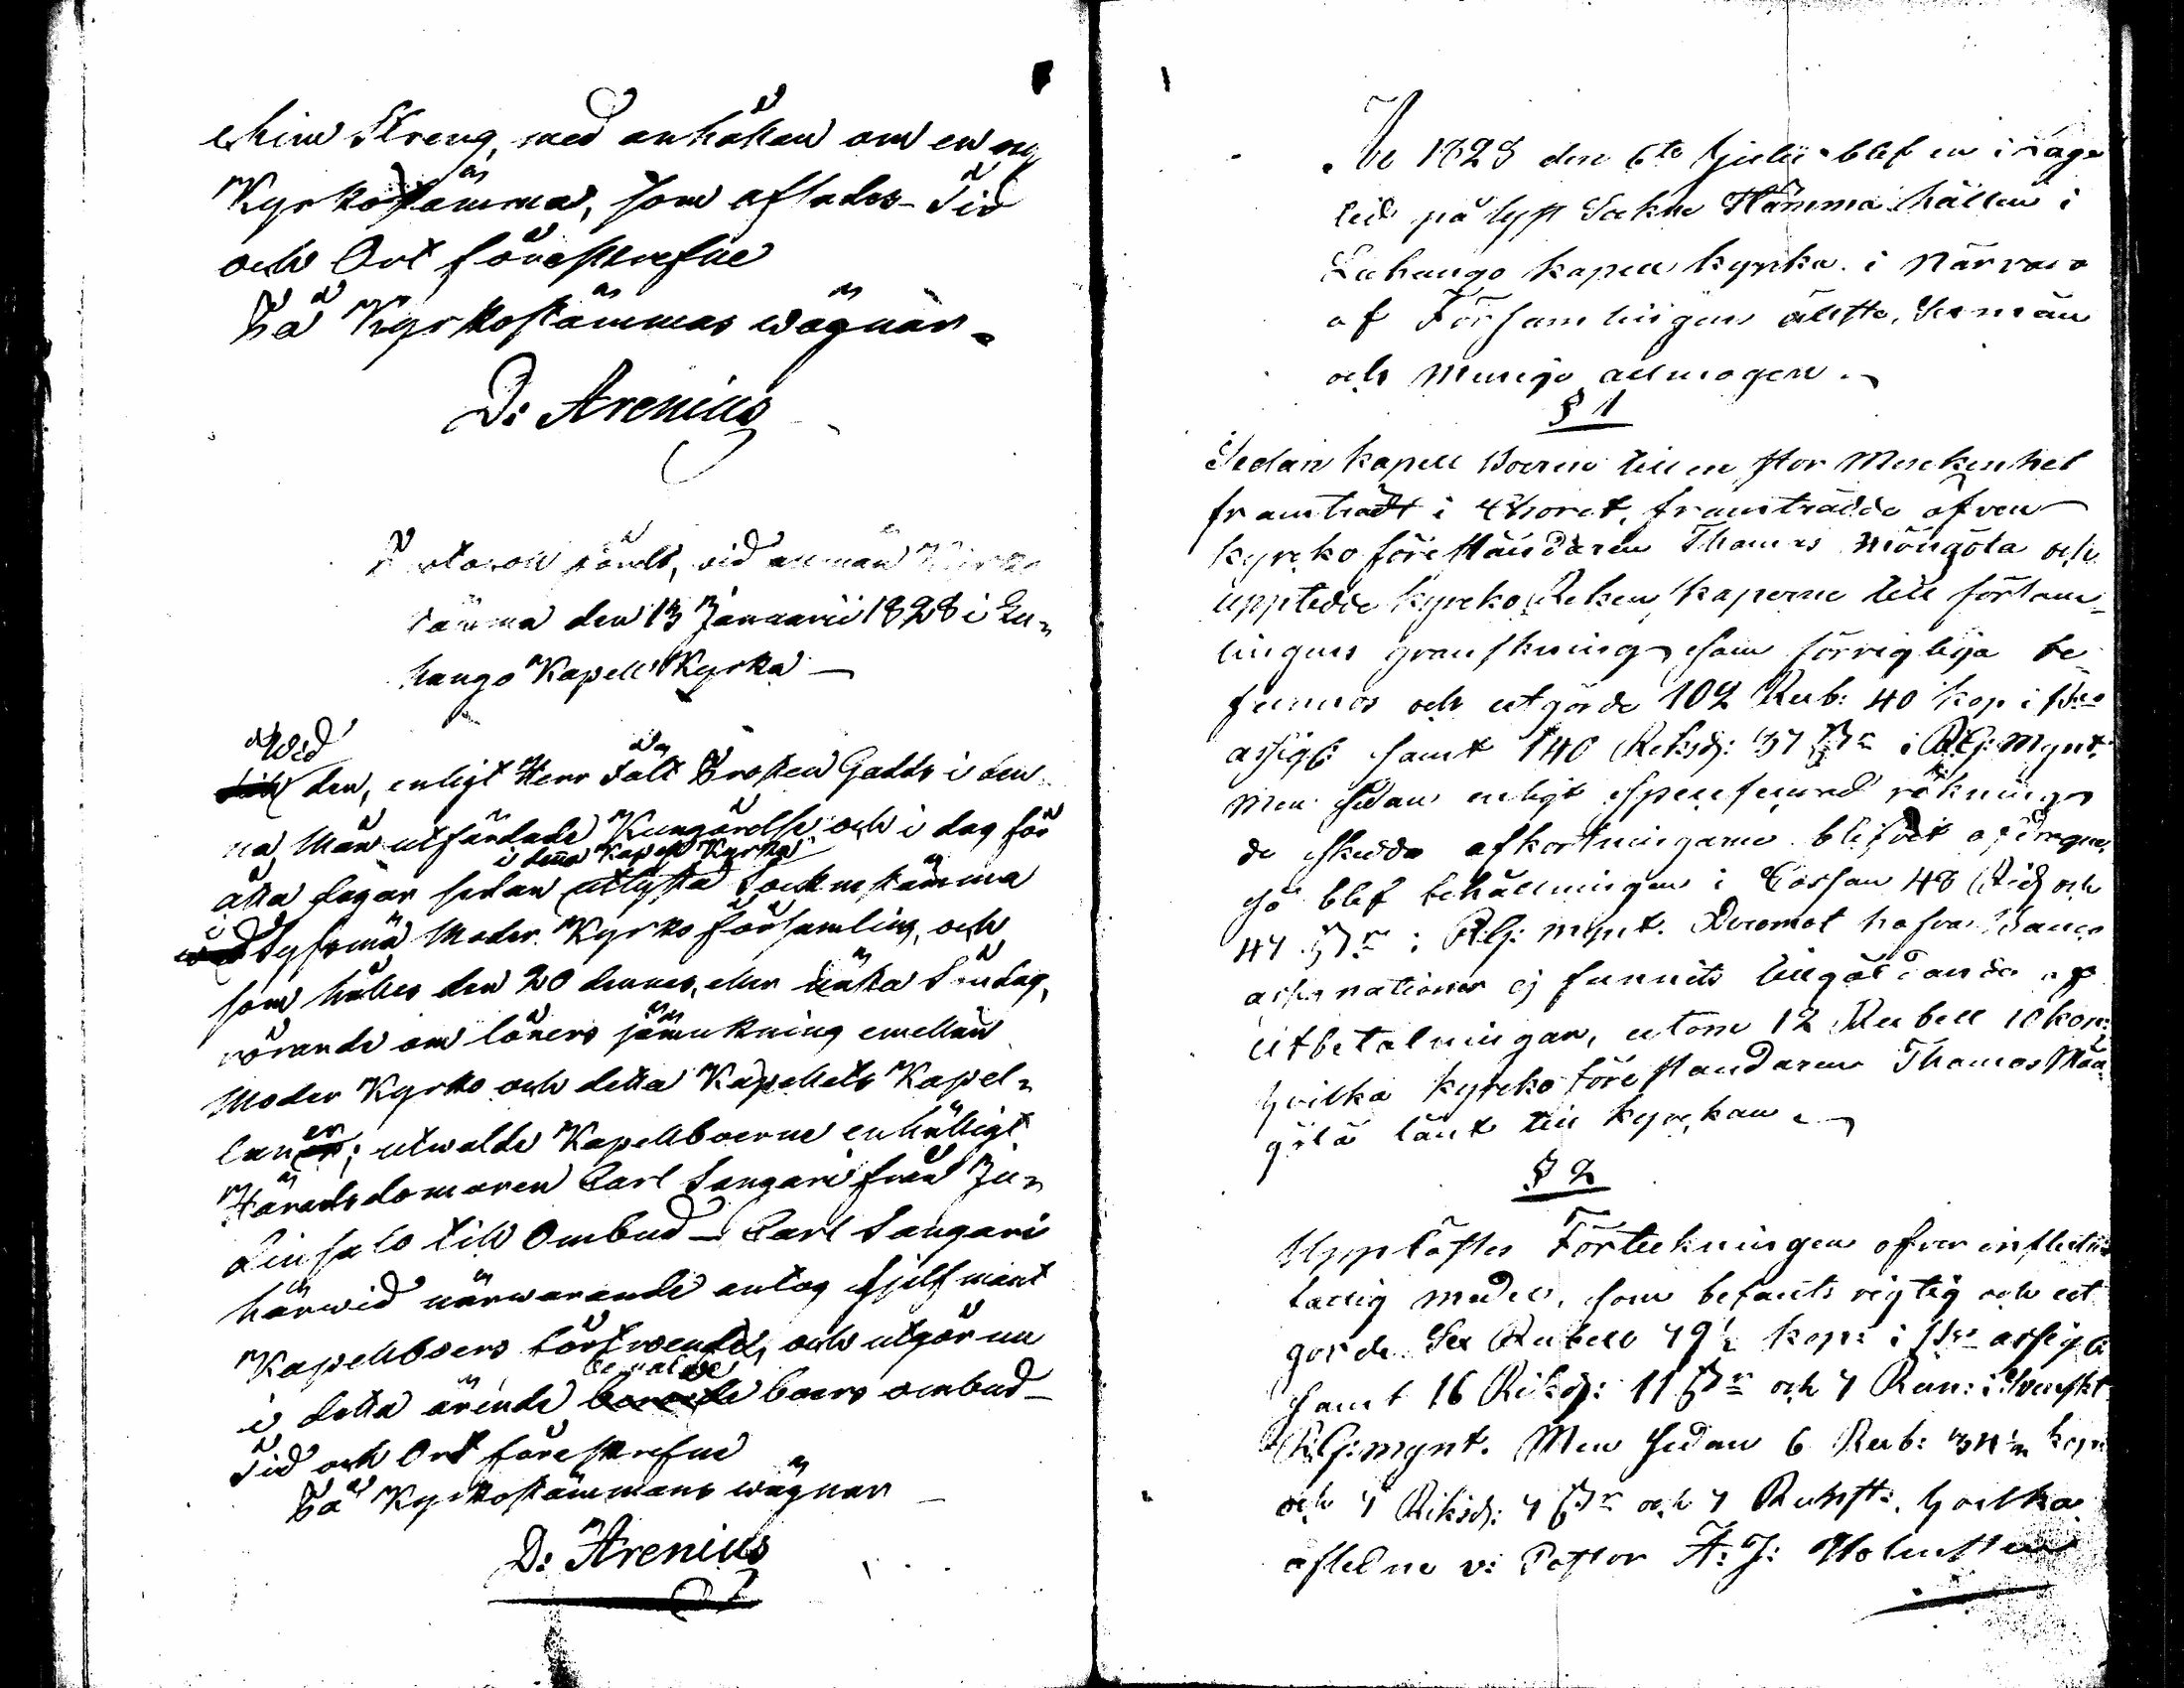 chim Streng, med anhållan om en ny
Kyrkostämma, som aflades. Tid
och Ort föreskrefne
På Kyrkostämmas wägnar.
D: Arenius
Protocoll fördt, vid allmän Kyrko
stämma den 13 Januarii 1828 i Lu-
hango Kapell Kyrka —
Wid
den, enligt Herr Fält Prosten Gadds i den-
na Mån utfärdade Kungörelse och i dag för
i denna Kapell Kyrka
åtta dagar sedan utlysta Sockenstämma
i
Sysmä Moder Kyrko församling, och
som hålles den 20 dennes, eller nästa Söndag,
rörande om löners jämnkning emellan
Moder Kyrko och detta Kapellets Kapel-
laner; utwalde Kapellboerne enhälligt
Häradsdomaren Carl Sangari från Ju-
dinsalo till Ombud — Carl Sangari
härwid närwarande antog sjelfmant
Kapellboers förtroende, och utgör nu
i detta ärende boers ombud —
Tid och Ort föreskrefne
På Kyrkostämmans wägnar —
D: Arenius
År 1828 den 6te Julii blef en i laga
tid på lyst Sockne Stämma hållen i
Luhango kapell kyrka i närvaro
af Församlingens äldste, Sexmän
och Menige allmogen.
§ 1
Sedan kapell Boerne till en stor Myckenhet
framträdt i Choret, framträdde äfven
kyrko föreståndaren Thomas Mörngölä och
uppledde kyrko Räkenskaperne till försam-
lingens granskning som förrigtiga be-
funnos och utgörde 102 Rub: 40 kop i B:co
assigt: samt 140 Riksd: 37 i Rg: mynt.
Men sedan enligt räkning
de skedda afkortningarne blifvit afdragne,
så blef behållningen i Cassan 48 Rid och
44 i Rg: mynt. Deremot hafva Banco
assignationer ej funnits tillgäldande af
utbetalningar, utom 12 Rubell 10 kop:
hvilka kyrko föreståndaren Thomas Mörn-
gölä länt till kyrkan.
§ 2
Upplästes Förteckningen öfver influtne
fattig medel, som befants rigtig och ut-
gorde Sex Rubell 79½ kop: i B:co assigt
samt 16 Riksd: 11 och 4 Run: i Svenskt
Rg: mynt. Men sedan 6 Rub: kop
och 4 Riksd: 4 och 4 Runst: hvilka
aflidne v: Pastor A: J: Holmsten